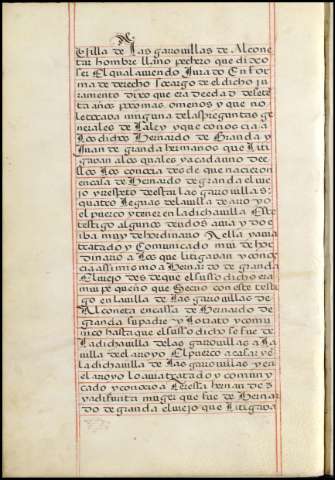 Vª
villa de las garouillas de Alcone
tar hombre llano pechero que dixo
ser El qual auiendo Jurado En for
ma de derecho so cargo de el dicho ju
ramento dixo que era de edad de sete
ta años poco mas o menos y que no
le tocaua ninguna de las preguntas ge
nerales de la ley y que conoscia a
los dichos Bernardo de Granda y
Juan de granda hermanos que liti
gauan a los quales y a cada uno de e
llos los conocia desde que nacieron
en casa de Bernardo de granda el vie
jo y respeto de estar las garouillas
quatro leguas de la uilla de aroyo
el puerco y tener en la dicha uilla Este
testigo algunos deudos auia y do e
iba muy de hordinario A ella y auia
tratado y Comunicado mui de hor
dinario a Los que litigauan y cono
cia assi mismo a Bernardo de granda
El uiejo desde que el susso dicho era
mui pequeño que se crio con este testi
go en la uilla de las garouillas de
Alconeta en cassa de Bernardo de
granda su padre y lo trato y comu
nico hasta que el susso dicho se fue de
la dicha uilla de las garouillas a la
uilla de el arroyo El puerco a casar y e
la dicha uilla de las garouillas y en
el arroyo lo auia tratado y comuni
cado y conocio a Teressa hernandes
ya difunta muger que fue de Bernar
do de granda el uiejo que litigaua